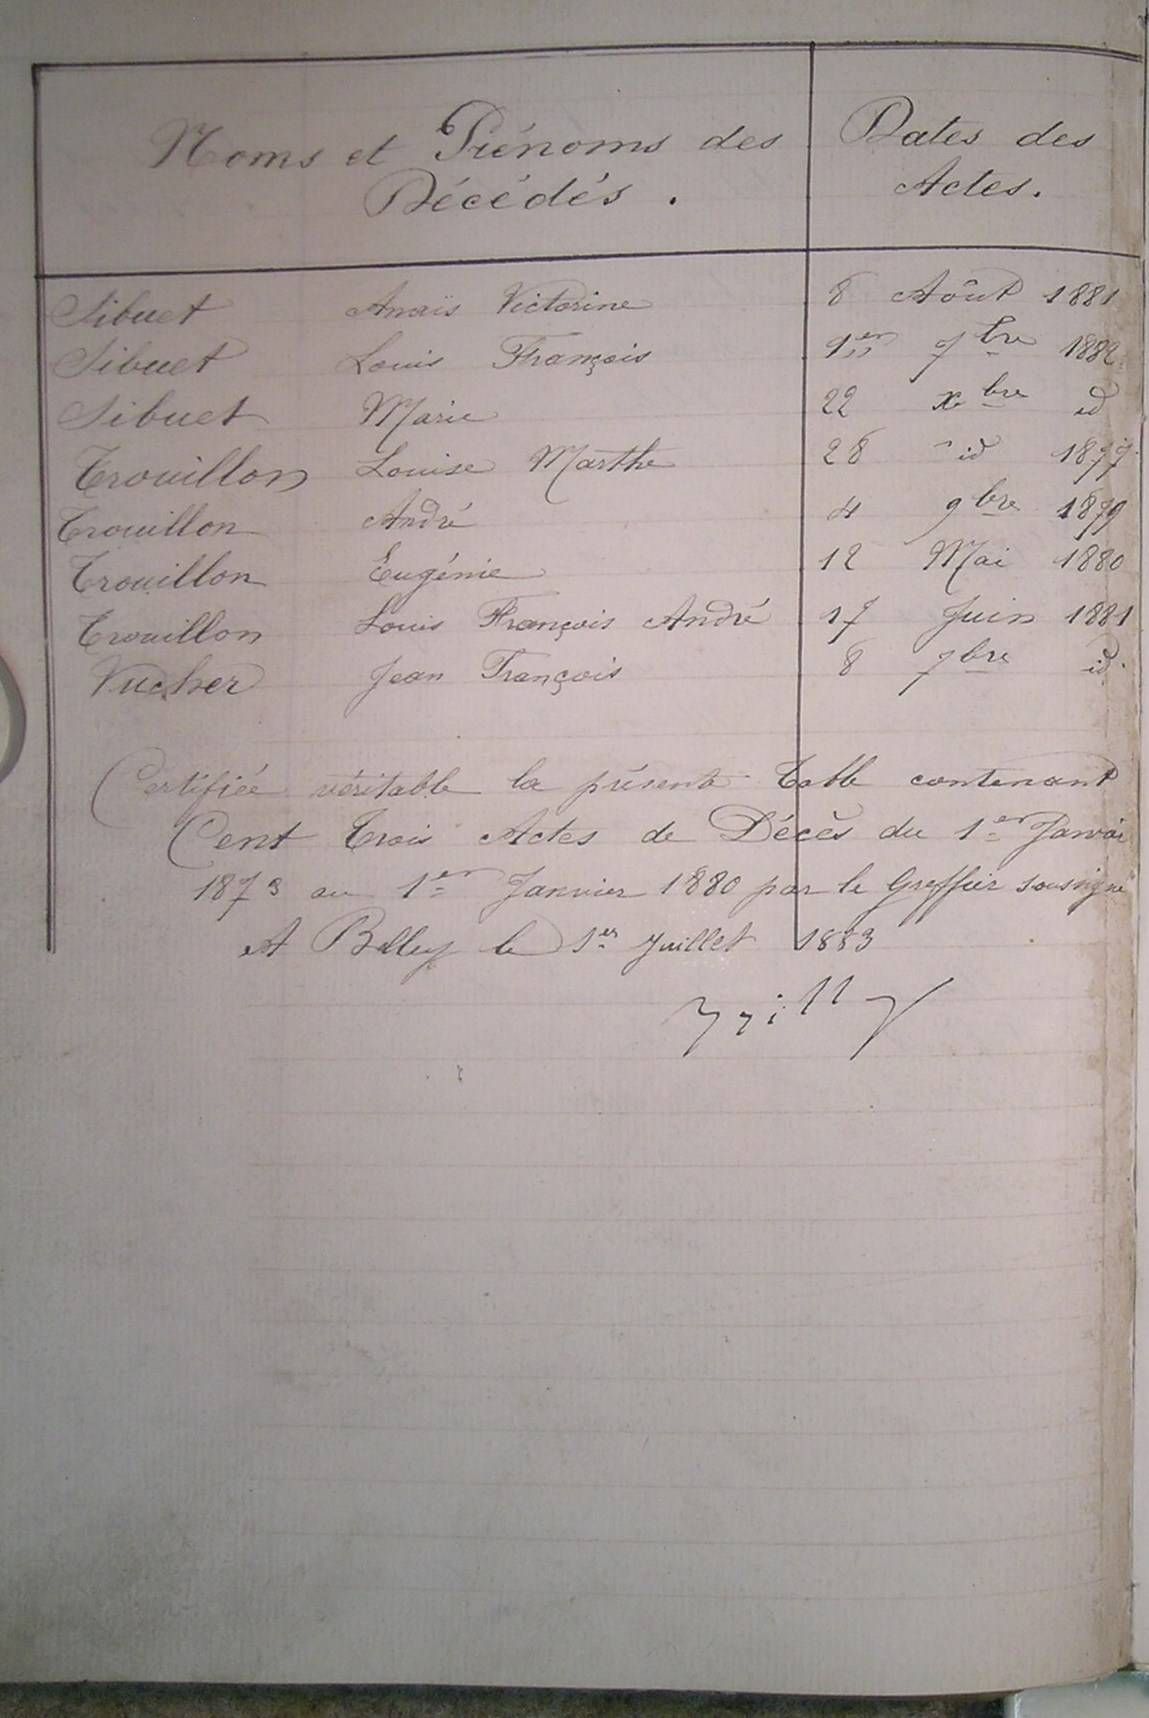 Noms et Prénoms des Décédés. Dates des Actes.
Sibuet Anaïs Victorine 8 Août 1881
Sibuet Louis François 1er 7bre 1882
Sibuet Marie 22 Xbre id
Trouillon Louise Marthe 28 id 1877
Trouillon André 4 9bre 1879
Trouillon Eugénie 12 Mai 1880
Trouillon Louis François André 17 Juin 1881
Vucher Jean François 8 7bre id.
Certifiée véritable la présente Table contenant
Cent Trois Actes de Décès du 1er Janvier
1873 au 1er Janvier 1880 par le Greffier soussigné
A Belley le 1er Juillet 1883